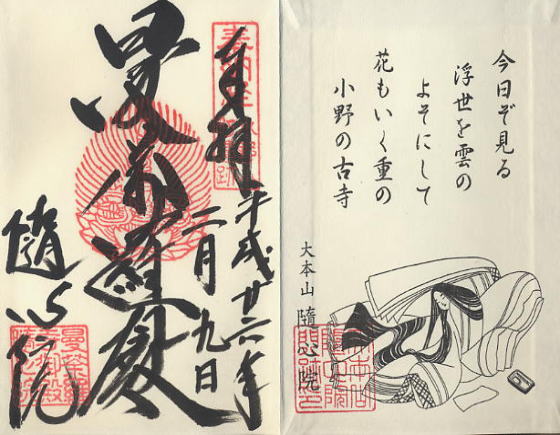 今日ぞ見る
浮世を雲の
よそにして
花もいく重の
小野の古寺
大本山 隨心院
奉拝
平成廿六年
二月九日
曼荼羅殿
隨心院